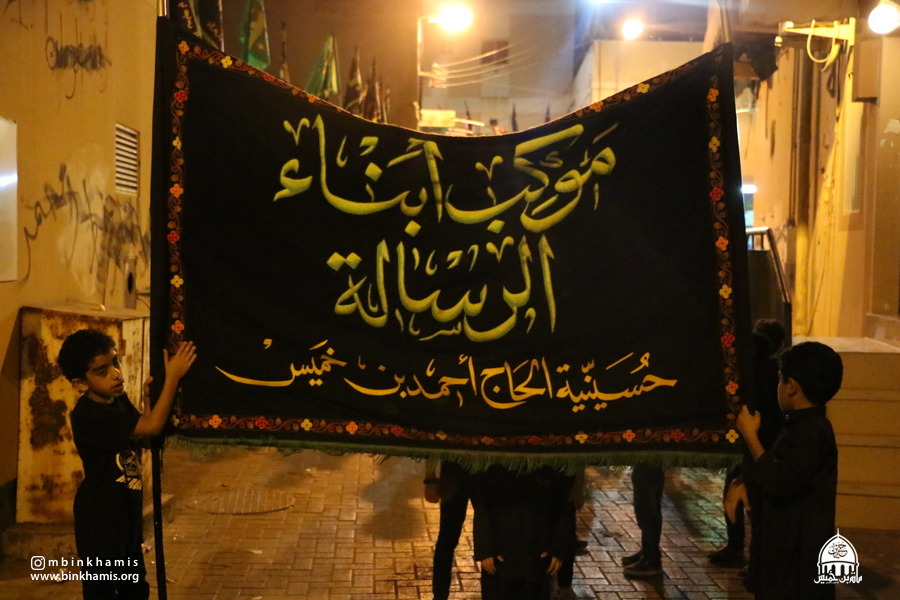 موكب أبناء
الرسالة
حُسَينيّة الحَاج أحمد بن خميس
mbinkhamis
www.binkhamis.org